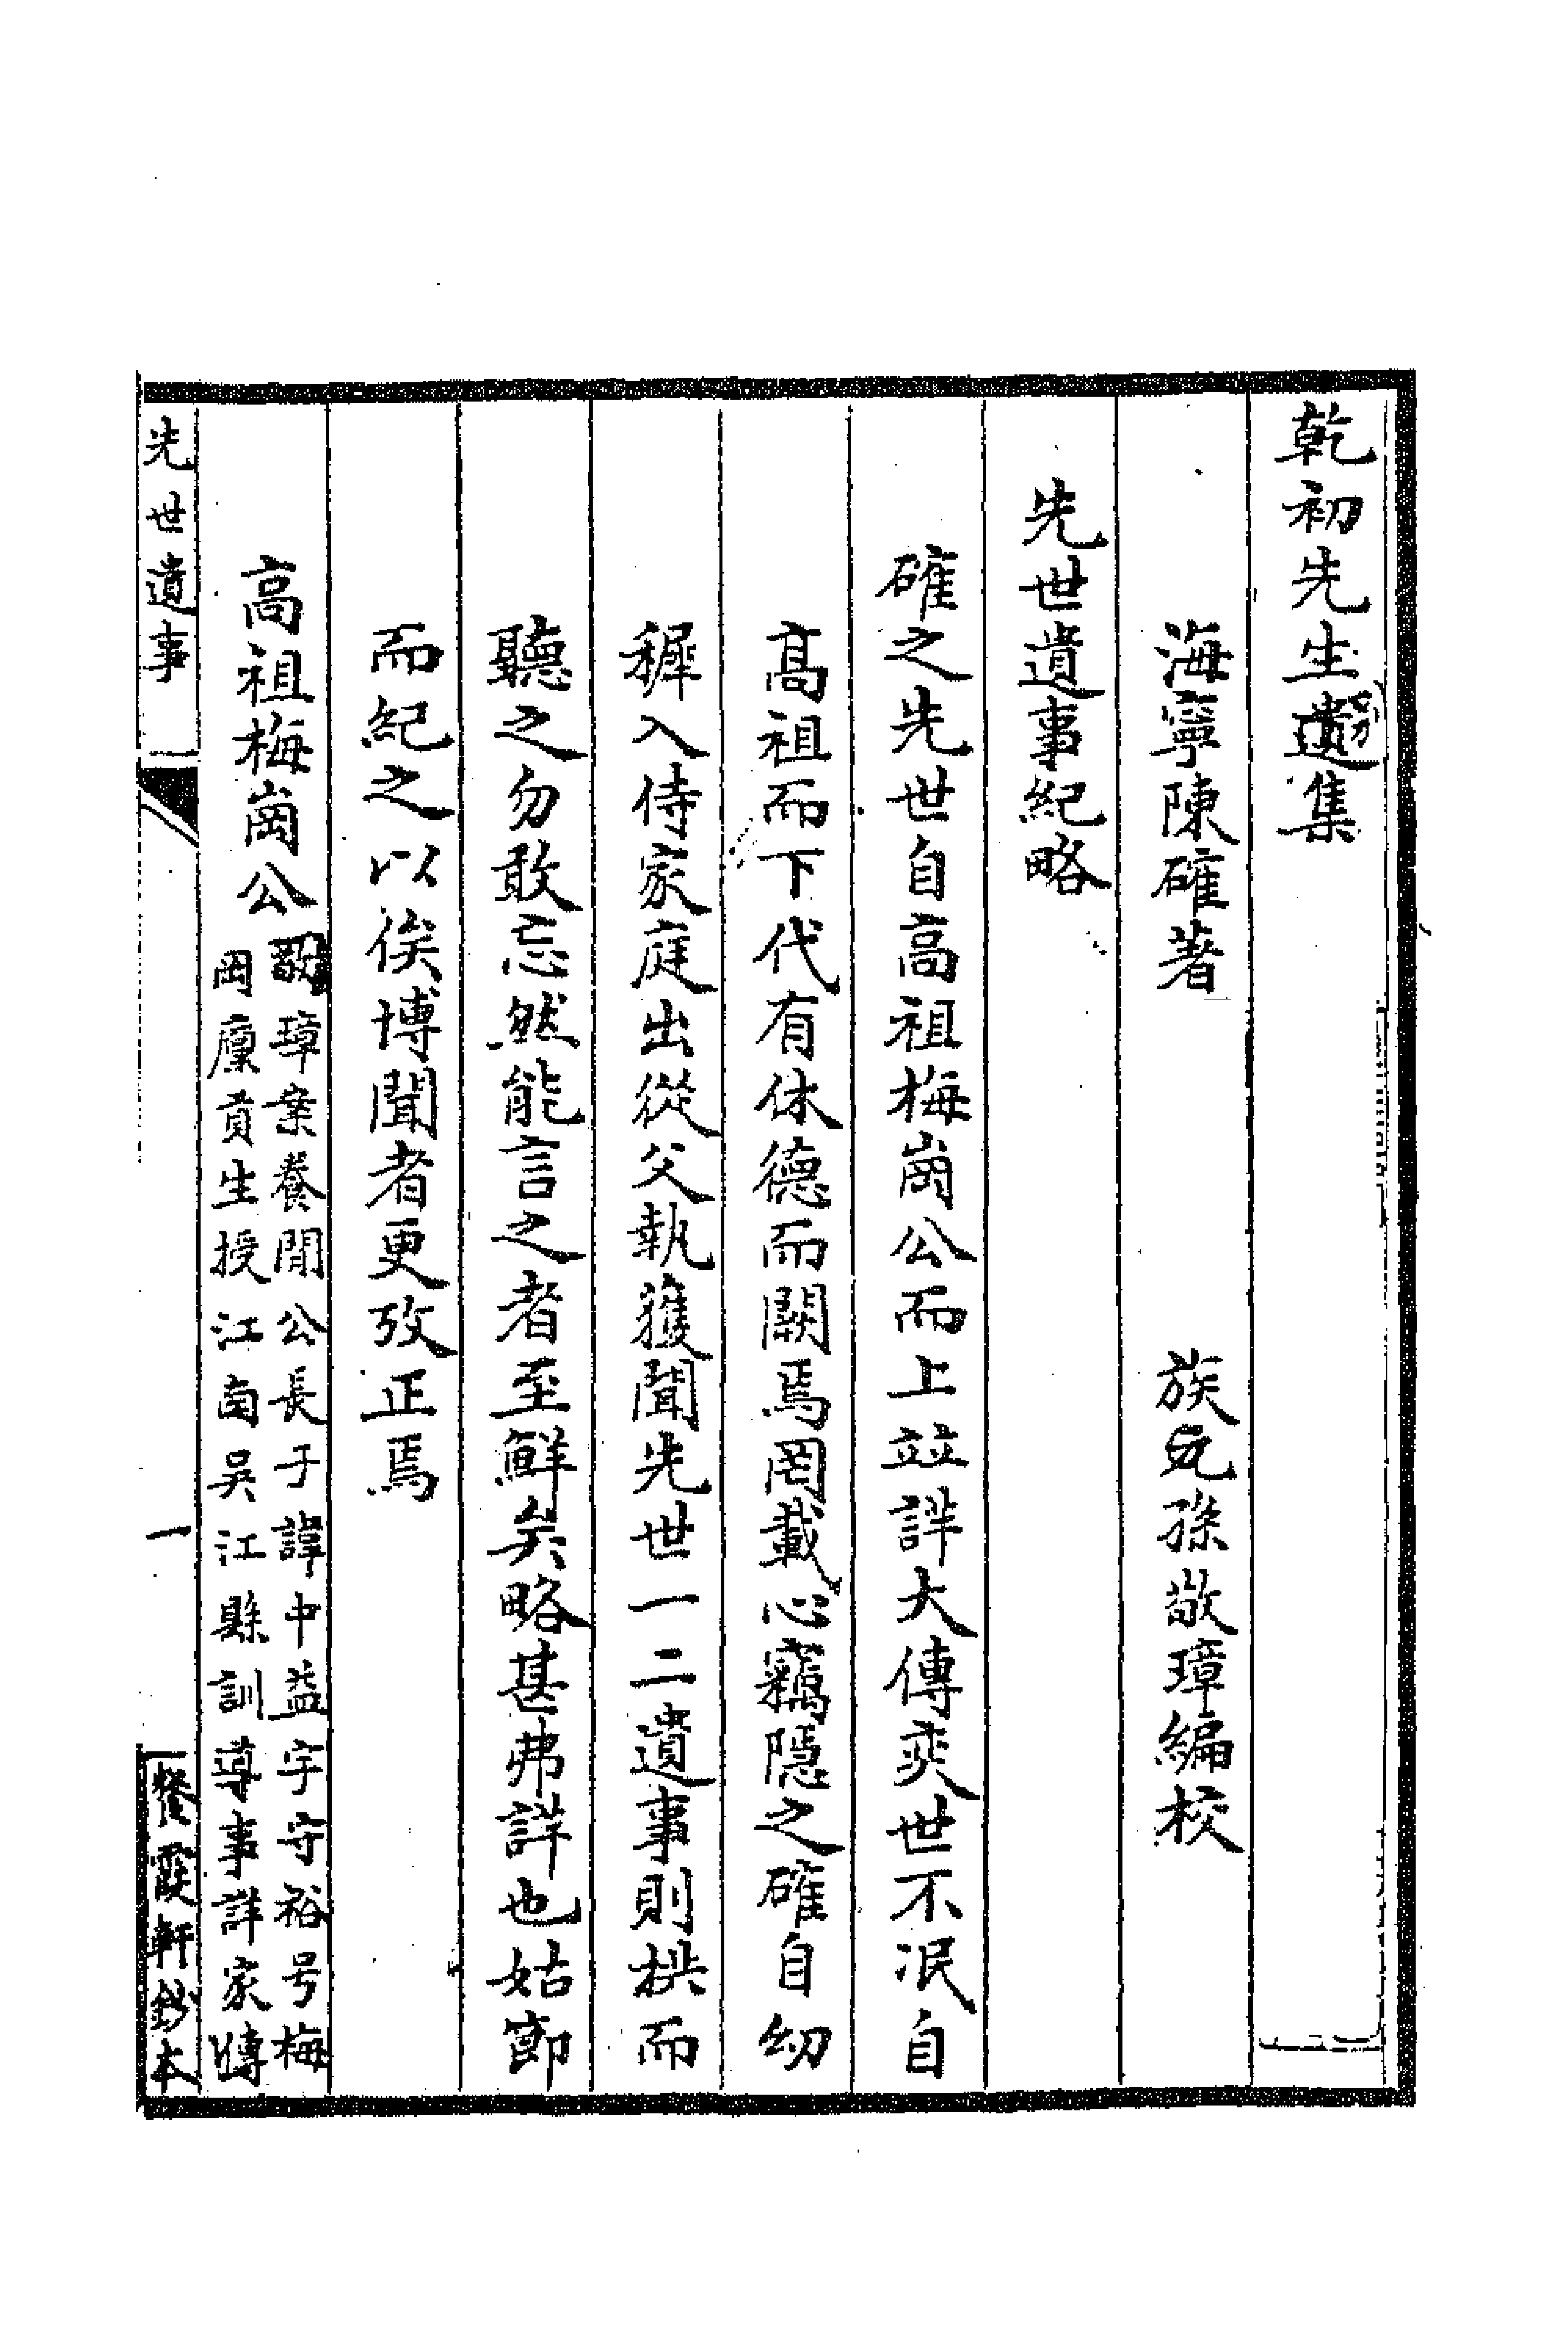 乾初先生遺集
海寧陳確著　族元孫敬璋編校
先世遺事紀略
確之先世自高祖梅崗公而上竝詳大傳奕世不泯自
高祖而下代有休德而闕焉罔載心竊隱之確自幼
穉入侍家庭出從父執獲聞先世一二遺事則拱而
聽之勿敢忘然能言之者至鮮矣略甚弗詳也姑節
而紀之以俟博聞者更攷正焉
高祖梅崗公
敬璋案養閒公長子諱中益字守裕号梅
岡廩貢生授江南吳江縣訓導事詳家傳
先世遺事　一　餐霞軒鈔本